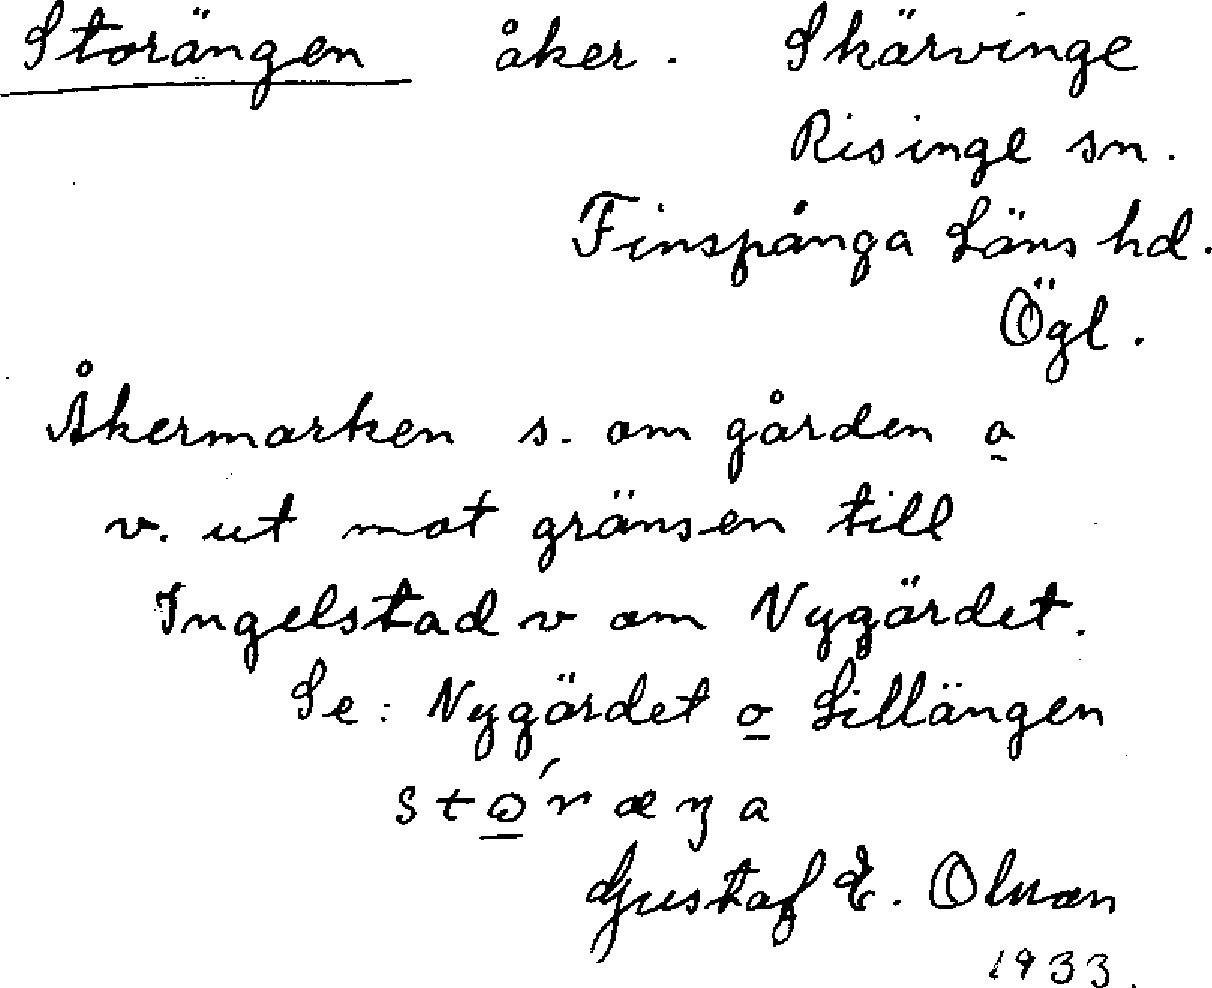 Storängen åker. Skärvinge
Risinge sn.
Finspånga Läns hd.
Ögl.
Åkermarken s. om gården o
v. ut mot gränsen till
Ingelstad v om Nygärdet.
Se: Nygärdet o Lillängen
Gustaf E. Olsson
1933.